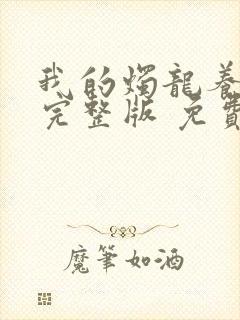 我的燭龍養
完整版 免費
魔筆如酒